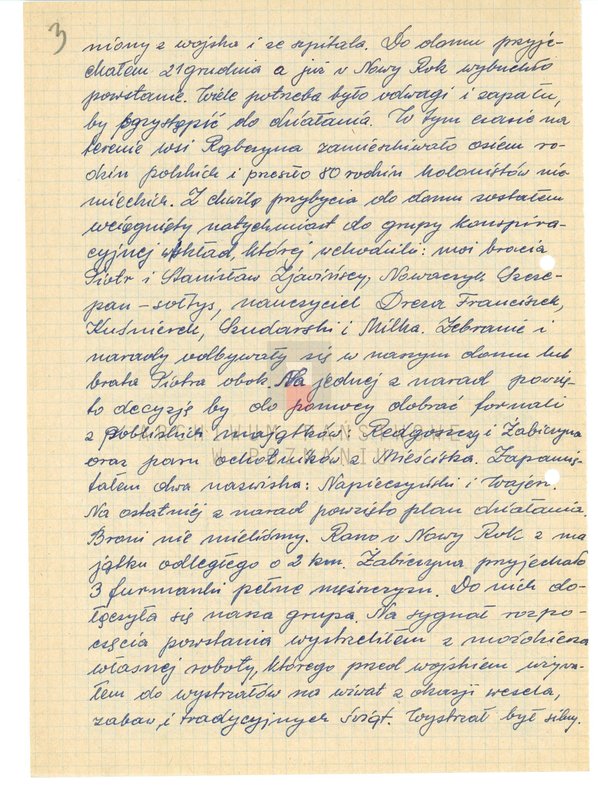 3
niony z wojska i ze szpitala. Do domu przyje-
chałem 21 grudnia a już v Nowy Rok wybuchło
powstanie. Wiele potrzeba było odwagi i zapału,
by przystąpić do działania. W tym czasie na
terenie wsi Rąbczyna zamieszkiwało osiem ro-
dzin polskich i przeszło 80 rodzin kolonistów nie-
mieckich. Z chwilą przybycia do domu zostałem
wciągnięty natychmiast do grupy konspira-
cyjnej w skład, której wchodzili: moi bracia
Piotr i Stanisław Zjawińscy, Nowaczyk Szcze-
pan - sołtys, nauczyciel Dreza Franciszek,
Kuśnierek, Szudarski i Milka. Zebranie i
narady odbywały się w naszym domu lub
brata Piotra obok. Na jednej z narad powzię-
to decyzję by do pomocy dobrać fornali
z pobliskich majątków: Redgoszcz i Żabiczyna
oraz paru ochotników z Mieściska. Zapamię-
tałem dwa nazwiska: Napieczyński i Wajer.
Na ostatniej z narad powzięto plan działania.
Broni nie mieliśmy. Rano v Nowy Rok z ma
jątku odległego o 2 km. Żabiczyna przyjechało
3 furmanki pełne mężczyzn. Do nich do-
łączyła się nasza grupa. Na sygnał rozpo-
częcia powstania wystrzeliłem z moździerza
własnej roboty, którego przed wojskiem używa-
łem do wystrzałów na wiwat z okazji wesela,
zabaw, i tradycyjnych świąt. Wystrzał był silny.
ARCHIWUM PAŃSTWOWE
W POZNANIU